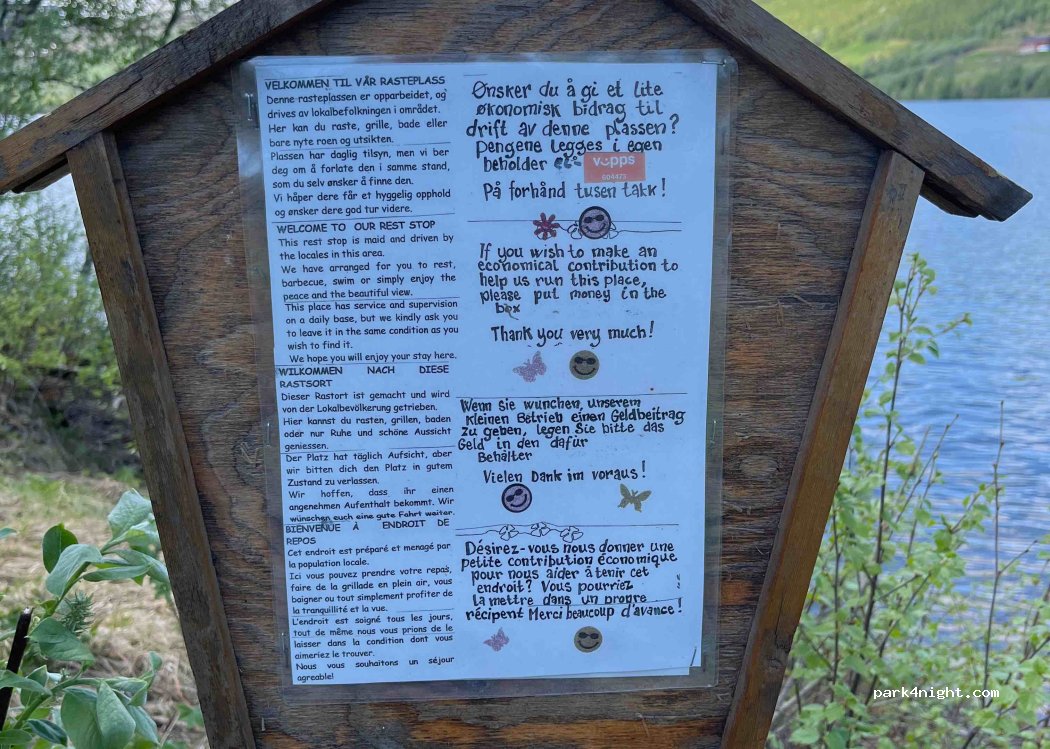 VELKOMMEN TIL VÅR RASTEPLASS
Denne rasteplassen er opparbeidet, og
drives av lokalbefolkningen i området.
Her kan du raste, grille, bade eller
bare nyte roen og utsikten.
Plassen har daglig tilsyn, men vi ber
deg om å forlate den i samme stand,
som du selv ønsker å finne den.
Vi håper dere får et hyggelig opphold
og ønsker dere god tur videre.
WELCOME TO OUR REST STOP
This rest stop is maid and driven by
the locales in this area.
We have arranged for you to rest,
barbecue, swim or simply enjoy the
peace and the beautiful view.
This place has service and supervision
on a daily base, but we kindly ask you
to leave it in the same condition as you
wish to find it.
We hope you will enjoy your stay here.
WILKOMMEN NACH DIESE
RASTSORT
Dieser Rastort ist gemacht und wird
von der Lokalbevölkerung getrieben.
Hier kannst du rasten, grillen, baden
oder nur Ruhe und schöne Aussicht
geniessen.
Der Platz hat täglich Aufsicht, aber
wir bitten dich den Platz in gutem
Zustand zu verlassen.
Wir hoffen, dass ihr einen
angenehmen Aufenthalt bekommt. Wir
wünschen euch eine gute Fahrt weiter.
BIENVENUE À ENDROIT DE
REPOS
Cet endroit est préparé et menagé par
la population locale.
Ici vous pouvez prendre votre repas,
faire de la grillade en plein air, vous
baigner ou tout simplement profiter de
la tranquillité et la vue.
L'endroit est soigné tous les jours,
tout de même nous vous prions de le
laisser dans la condition dont vous
aimeriez le trouver.
Nous vous souhaitons un séjour
agreable!
Ønsker du å gi et lite
økonomisk bidrag til
drift av denne plassen?
Pengene legges i egen
beholder
vipps
604473
På forhånd tusen takk!
If you wish to make an
economical contribution to
help us run this place,
please put money in the
box
Thank you very much!
Wenn Sie wünchen, unserem
kleinen Betrieb einen Geldbeitrag
zu geben, legen Sie bitte das
Geld in den dafür
Behälter
Vielen Dank im voraus!
Désirez-vous nous donner une
petite contribution économique
pour nous aider à tenir cet
endroit? Vous pourriez
la mettre dans un propre
récipent Merci beaucoup d'avance!
park4night.com